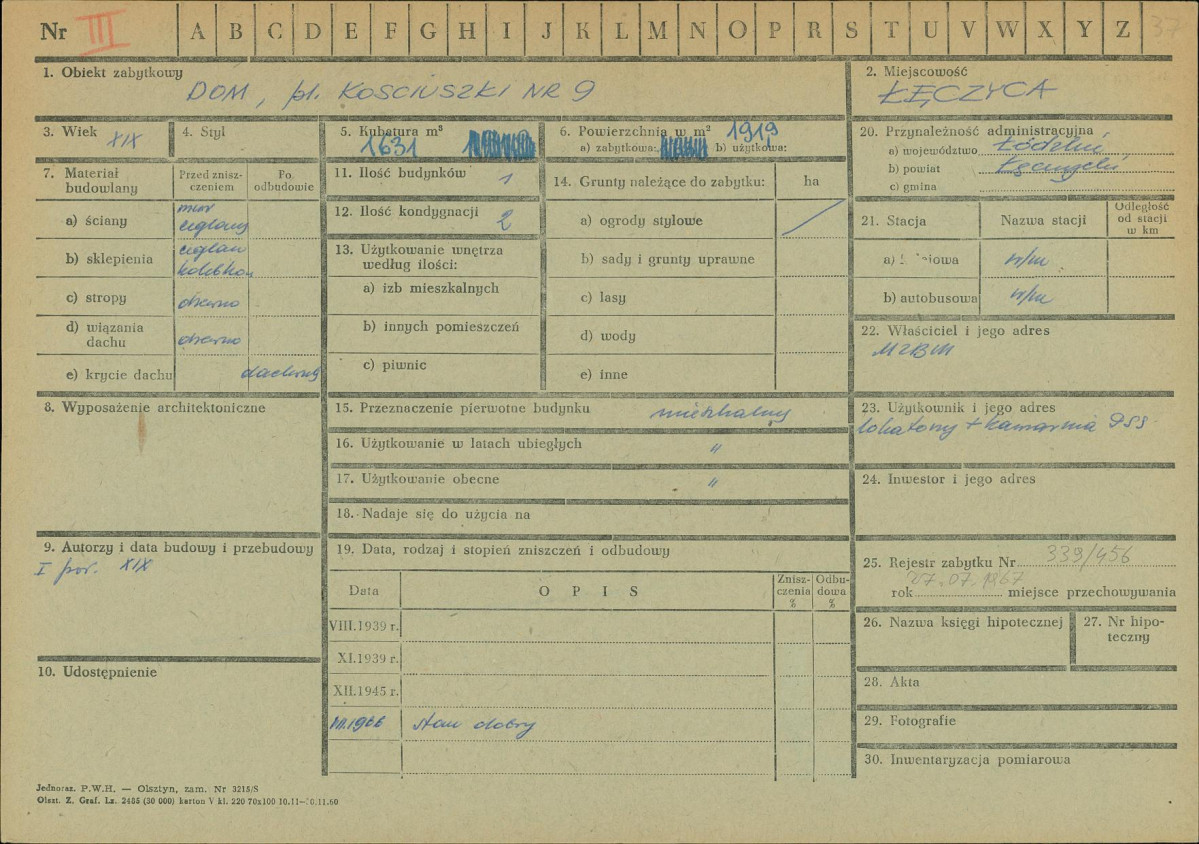 Nr III A B C D E F G H I J K L M N O P R S T U V W X Y Z 37
1. Obiekt zabytkowy
DOM, pl. KOŚCIUSZKI NR 9
2. Miejscowość
ŁĘCZYCA
3. Wiek XIX
4. Styl
5. Kubatura m³
1631
6. Powierzchnia w m² 1919
a) zabytkowa: b) użytkowa:
20. Przynależność administracyjna
a) województwo Łódzkie
b) powiat Łęczycki
c) gmina
7. Materiał budowlany
Przed zniszczeniem
Po odbudowie
a) ściany
mur ceglany
b) sklepienia
ceglan kolebkow
c) stropy drewno
d) wiązania dachu drewno
e) krycie dachu dachówką
11. Ilość budynków 1
12. Ilość kondygnacji 2
13. Użytkowanie wnętrza
według ilości:
a) izb mieszkalnych
b) innych pomieszczeń
c) piwnic
14. Grunty należące do zabytku: ha
a) ogrody stylowe
b) sady i grunty uprawne
c) lasy
d) wody
e) inne
21. Stacja Nazwa stacji
Odległość
od stacji
w km
a) iowa w/m
b) autobusowa w/m
22. Właściciel i jego adres
MZBM
8. Wyposażenie architektoniczne
15. Przeznaczenie pierwotne budynku mieszkalny
16. Użytkowanie w latach ubiegłych "
17. Użytkowanie obecne "
18. Nadaje się do użycia na
23. Użytkownik i jego adres
lokatorzy + kawiarnia PSS
24. Inwestor i jego adres
9. Autorzy i data budowy i przebudowy
I poł. XIX
19. Data, rodzaj i stopień zniszczeń i odbudowy
Data O P I S
Zniszczenia %
Odbudowa %
VIII.1939 r.
XI.1939 r.
XII.1945 r.
VII.1966 stan dobry
25. Rejestr zabytku Nr 339/456
27.07.1967
rok miejsce przechowywania
26. Nazwa księgi hipotecznej
27. Nr hipoteczny
28. Akta
29. Fotografie
30. Inwentaryzacja pomiarowa
10. Udostępnienie
Jednoraz. P.W.H. — Olsztyn, zam. Nr 3215/S
Olszt. Z. Graf. Lz. 2485 (30 000) karton V kl. 220 70x100 10.11—10.11.60